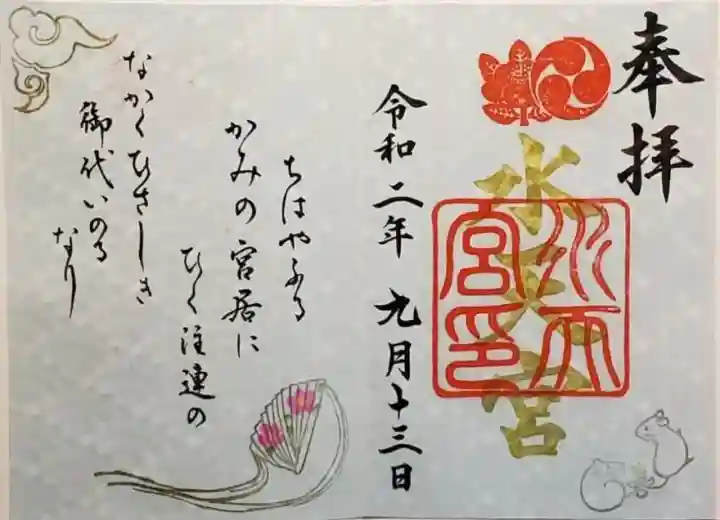 奉拝
水天宮
水天宮印
令和二年九月十三日
ちはやふる
かみの宮居に
ひく注連の
なかくひさしき
御代いのる
なり